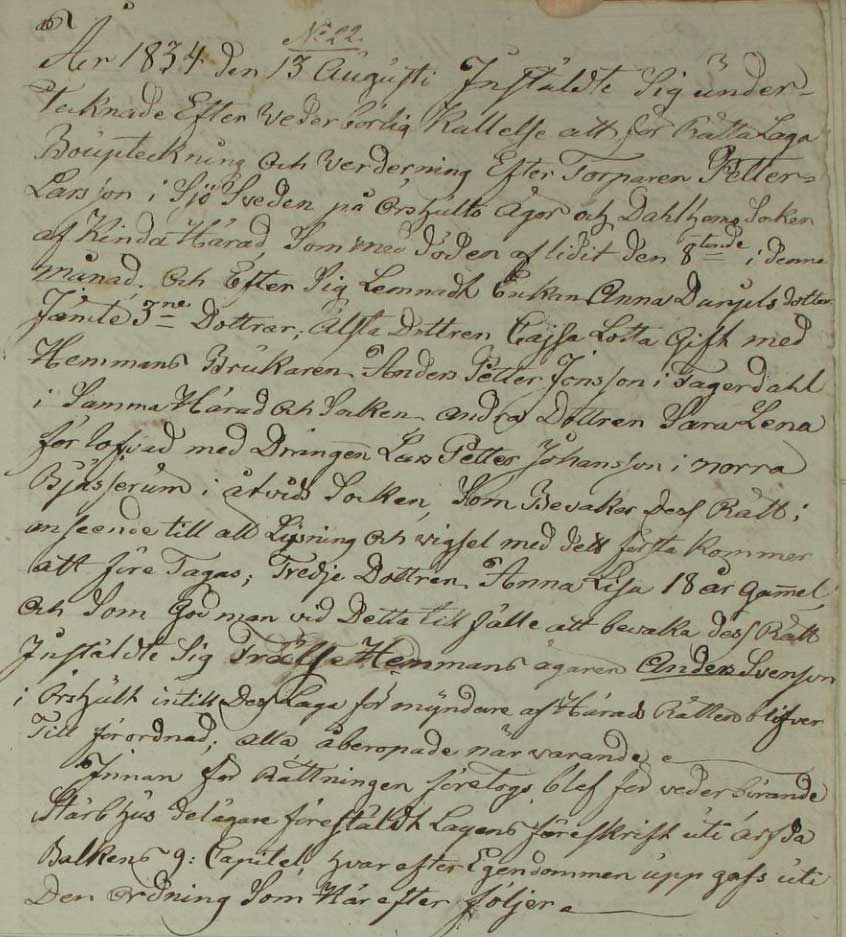 No 22.
Åer 1834 den 13 Augusti Instäldte Sig under-
Tecknade Efter Vederbörlig Kallelse att för Rätta Laga
Boupteckning och Verderning Efter Torparen Petter=
Larsson i Sjö Sveden på Örshults Ägor och Dahlhems Soken
af Kinda Härad, Som med döden aflidit den 8tende i denne
månad. och Efter Sig Lemnadt Enkan Anna Danjels dotter
Jämte 3ne Dottrar; Älsta Dottren Cajsa Lotta Gift med
Hemmans Brukaren Anders Petter Jonsson i Fagerdahl
i Samma Härad och Soken andra Dottren Sara Lena
förlofvad med Drängen Lars Petter Johansson i norra
Bjässerum i åtvids Socken, Som Bevakar dess Rätt i
anseende till att Lysning och vigsel med det första kommer
att före Tagas; Tredje Dottren Anna Lisa 18 år Gam̄el,
och Som God man vid Detta till fälle att bevaka dess Rätt
Instäldte Sig Frälse Hemmans ägaren Anders Svenson
i Örshult intill Dess Laga för myndare af Härads Rätten blifver
Till förordnad; alla åberopade när varande
Innan för Rättningen företogs blef för vederbörande
Stärbhus delägare föreställdt Lagens föreskrift uti ärfda
Balkens 9: Capitel, hvar efter Egendommen upp gafs uti
Den ordning Som Här efter följer